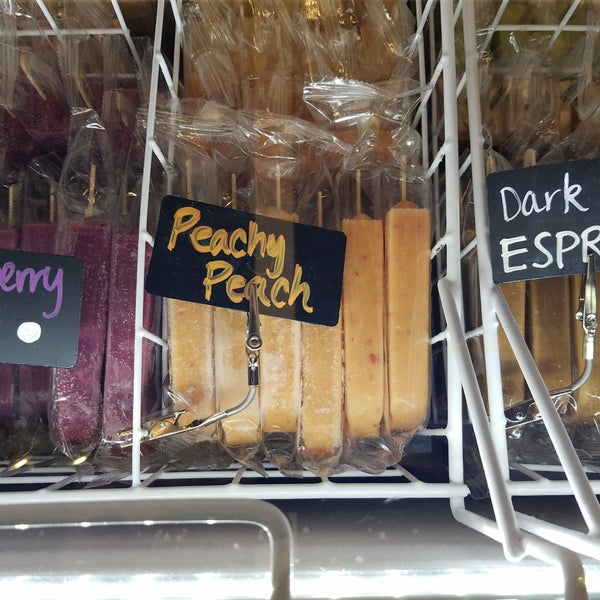 erry
Peachy
Peach
Dark
ESPR